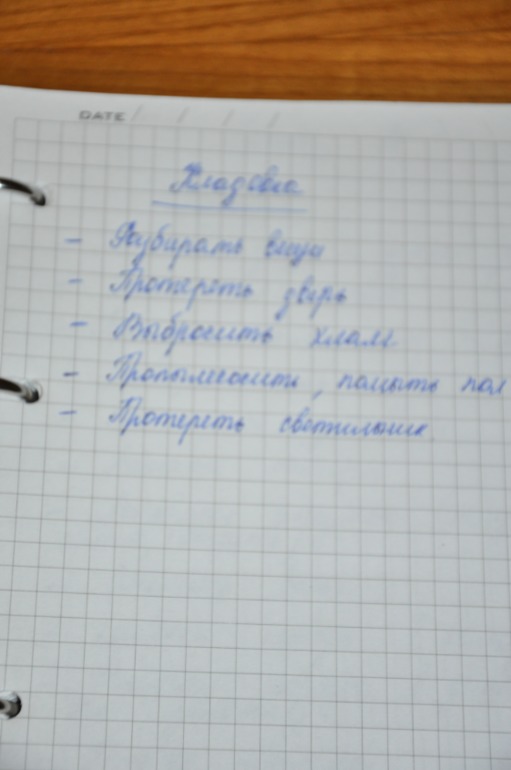 DATE / / /
Кладовка
- Разбирать вещи
- Протереть дверь
- Выбросить хлам
- Пропылесосить, помыть пол
- Протереть светильник